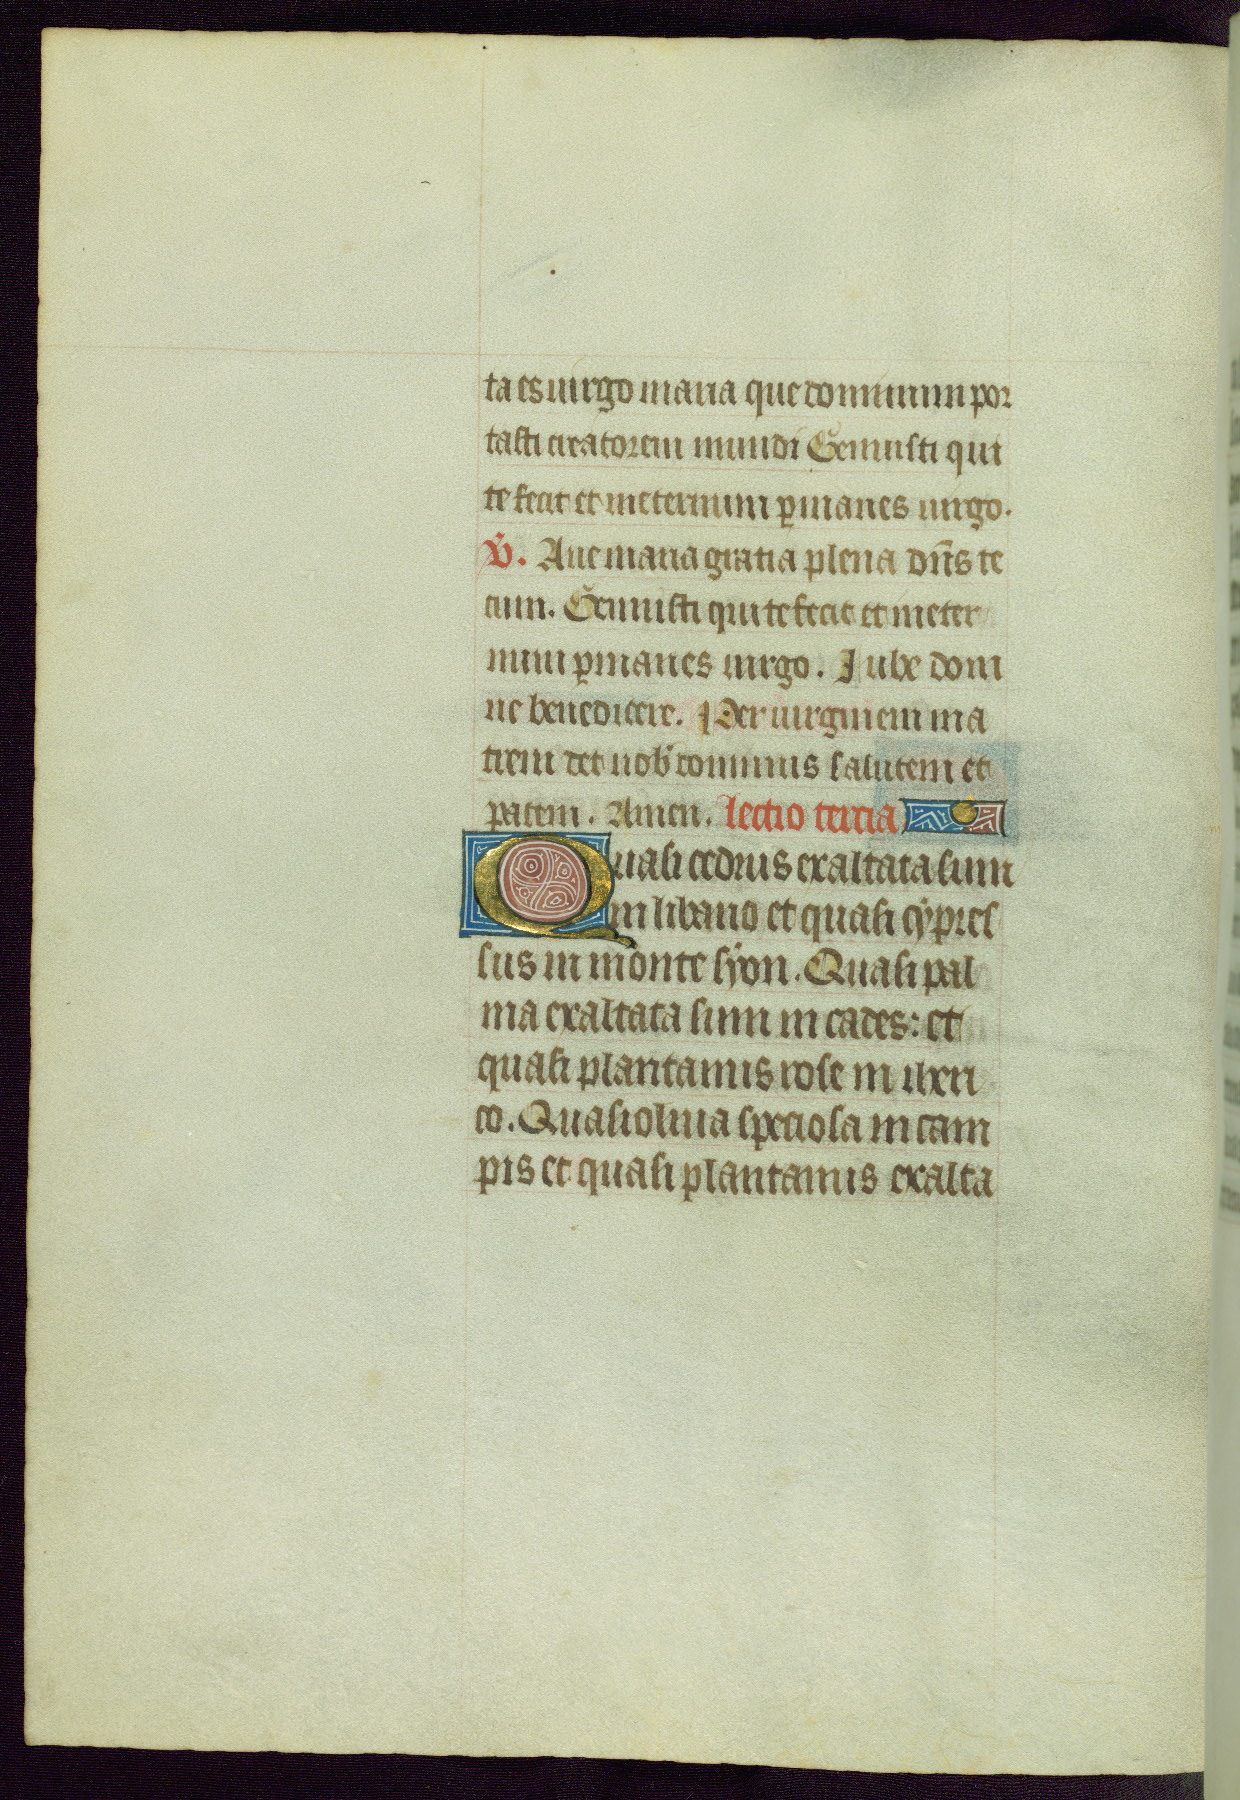 ta es uirgo maria que dominum por
tasti creatorem mundi Genuisti qui
te fecit et ineternum ꝑmanes uirgo.
V̄. Aue maria gratia plena dn̄s te
cum. Genuisti qui te fecit et ineter
num ꝑmanes uirgo. Jube dom
ne benedicere. Per uirginem ma
trem det nob̾ dominus salutem et
pacem. Amen. lectio tercia
Quasi cedrus exaltata sum
in libano et quasi cẏpres
sus in monte sẏon. Quasi pal
ma exaltata sum in cades: et
quasi plantamus rose in iheri
co. Quasi oliua speciosa in cam
pis et quasi plantamus exalta